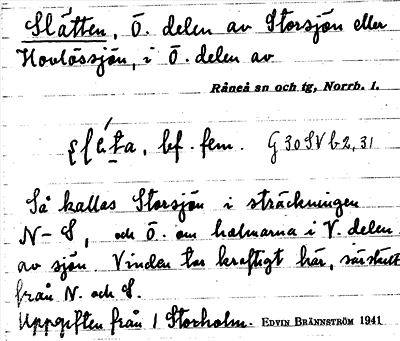 Slätten, Ö. delen av Storsjön eller
Hovlössjön, i Ö. delen av
Råneå sn och tg, Norrb. l.
bf. fem. G 30 SV b 2, 31
Så kallas Storsjön i sträckningen
N-S, och Ö. om holmarna i V. delen
av sjön. Vinden tar kraftigt här, särskilt
från N. och S.
Uppgiften från 1 Storholm. EDVIN BRÄNNSTRÖM 1941